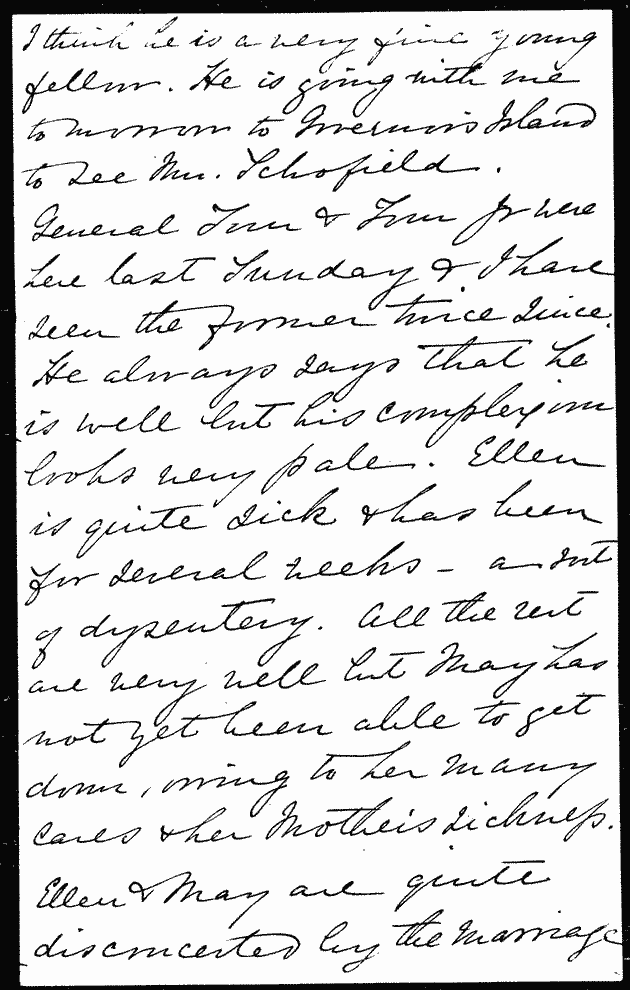 I think he is a very fine young
fellow. He is going with me
to morrow to Governor's Island
to see Mr. Schofield.
General Tom & Tom Jr were
here last Sunday & I have
seen the former twice since.
He always says that he
is well but his complexion
looks very pale. Ellen
is quite sick & has been
for several weeks - a sort
of dysentery. All the rest
are very well but May has
not yet been able to get
down, owing to her many
cares & her Mother's sickness.
Ellen & May are quite
disconcerted by the Marriage